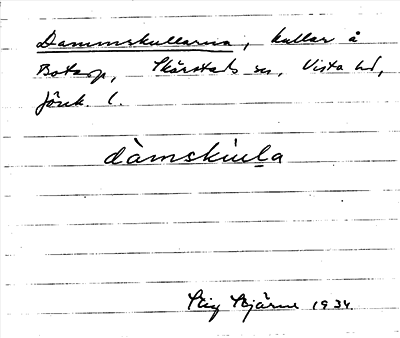 Dammskullarna, kullar å
Botarp, Skärstads sn, Vista hd,
Jönk. l.
dàmskiuḷa
Stig Bjärne 1934.